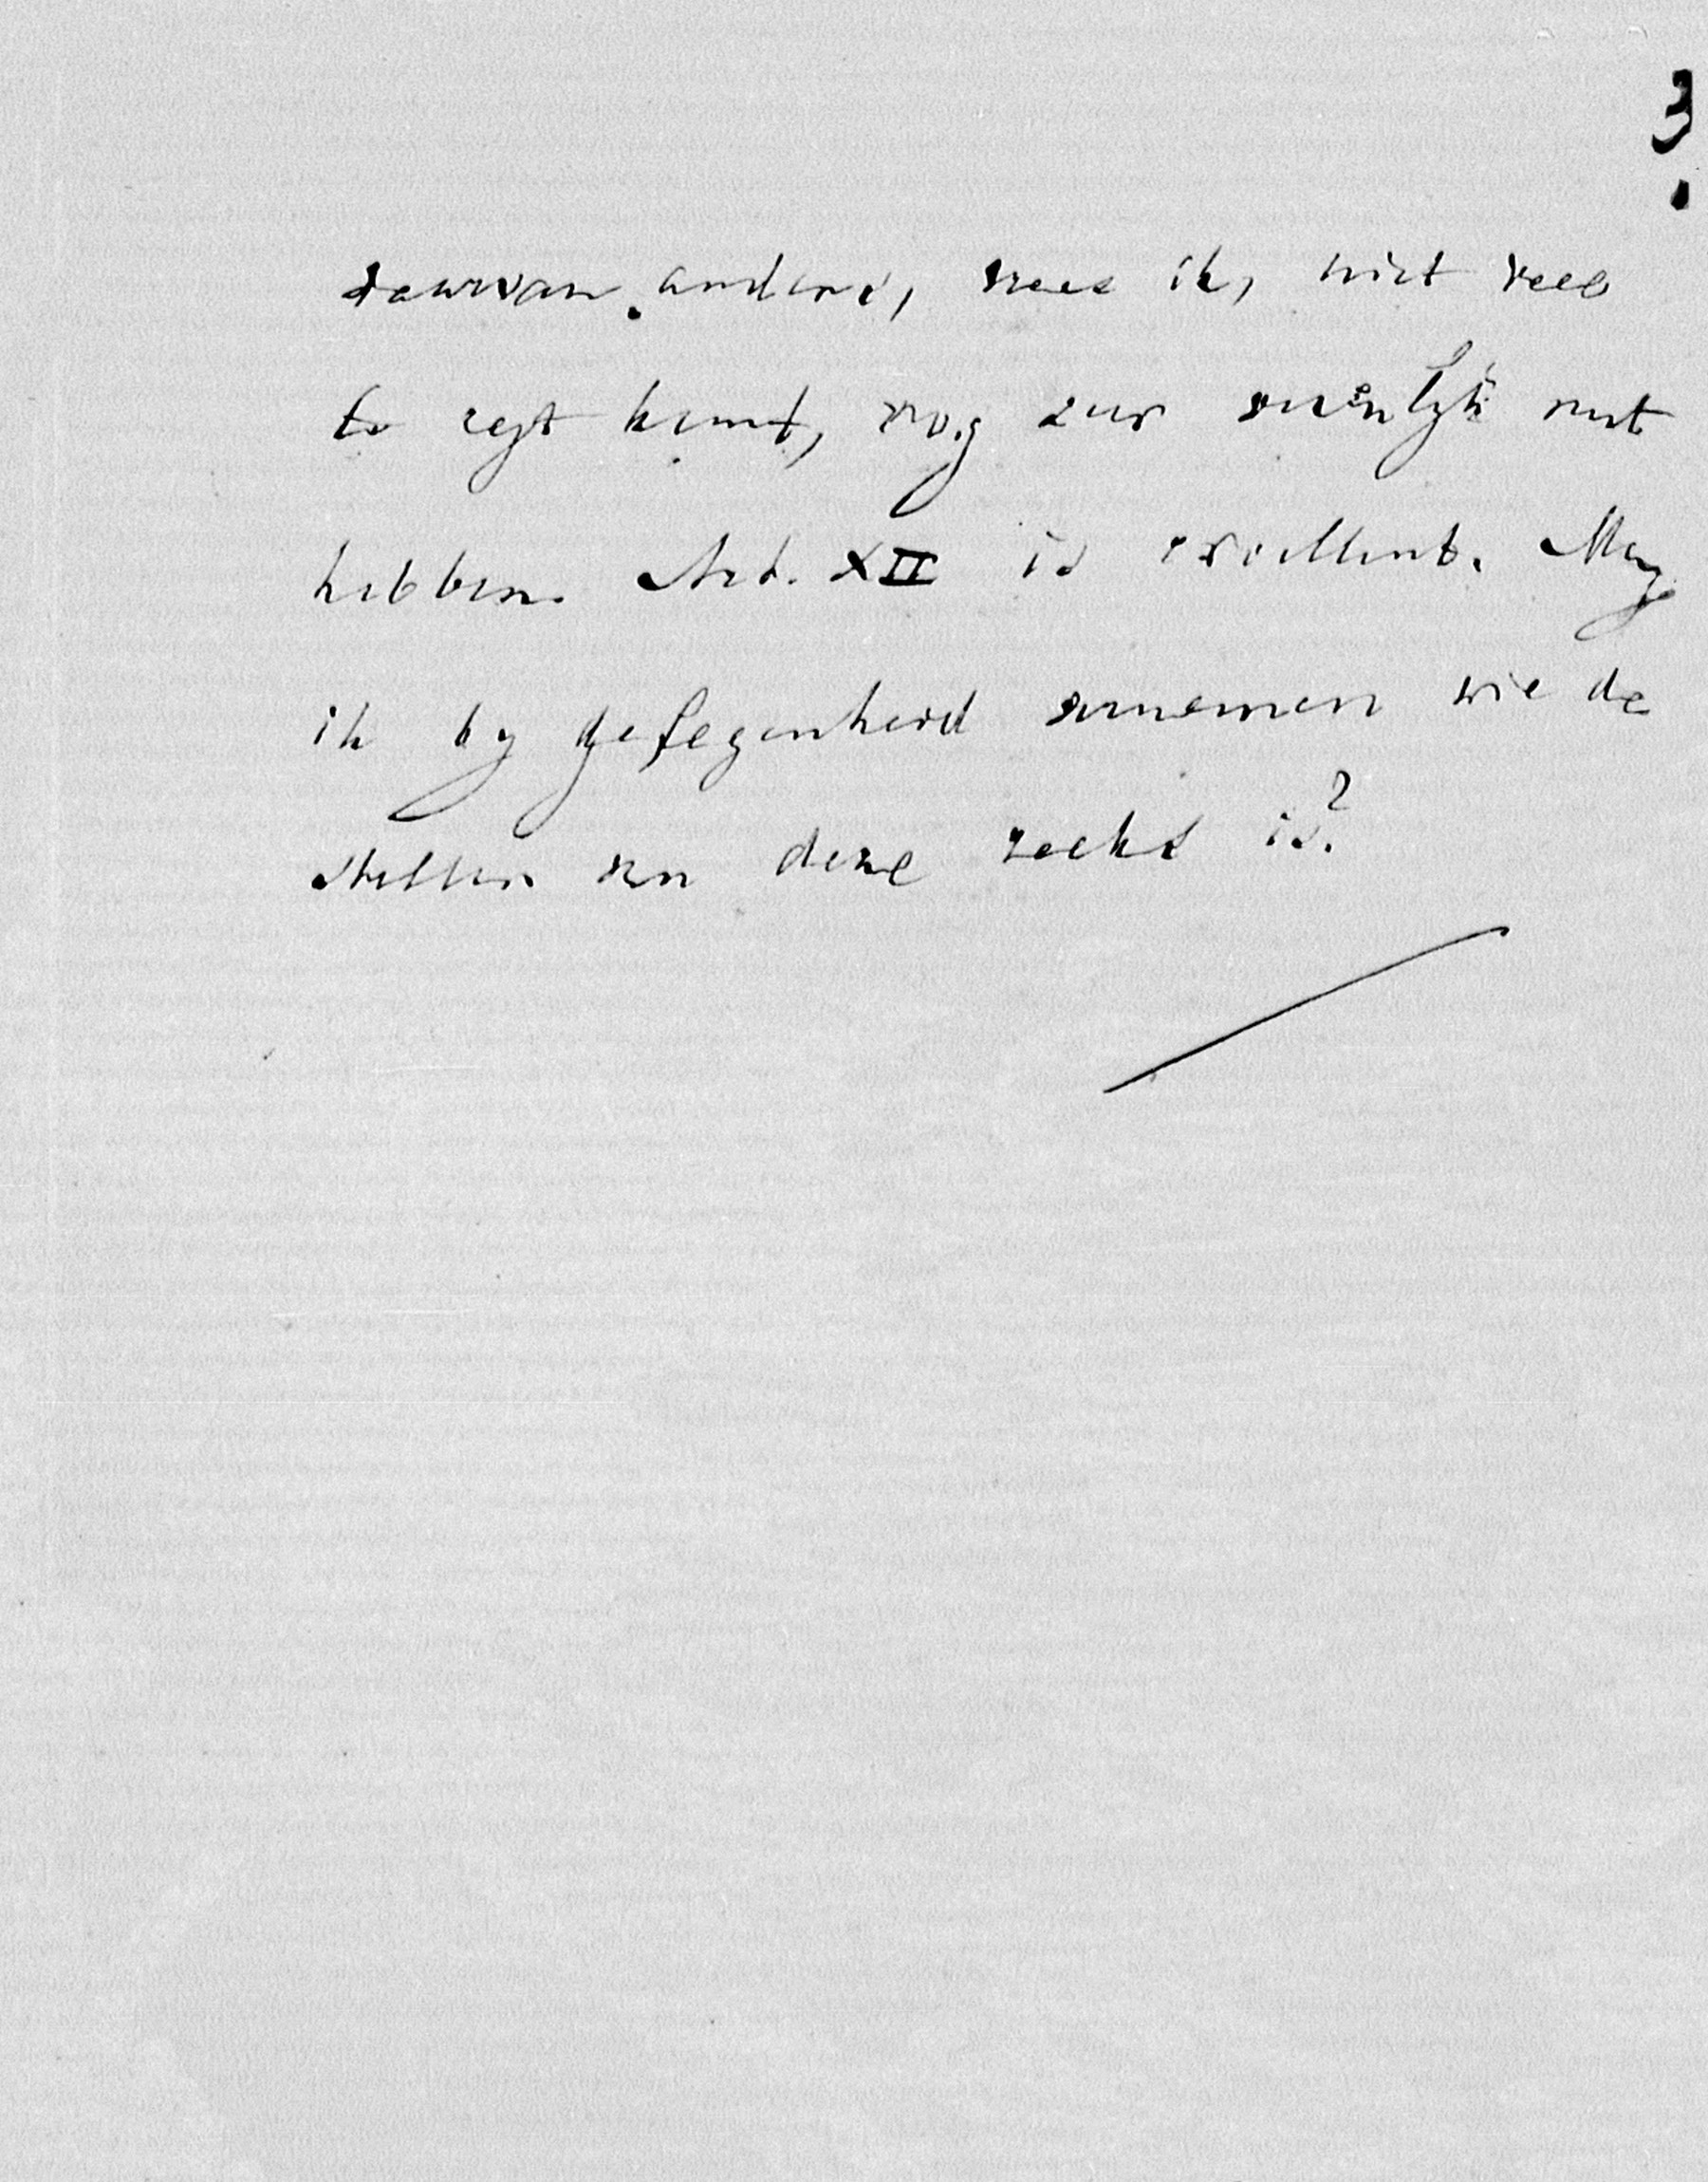 3.
daarvan anders, vrees ik, niet veel
te regt komt, nog zeer mijnlyk met
hebben. Art. XII is excellent. Mag
ik by gelegenheid vernemen wie de
steller van deze reeks is?